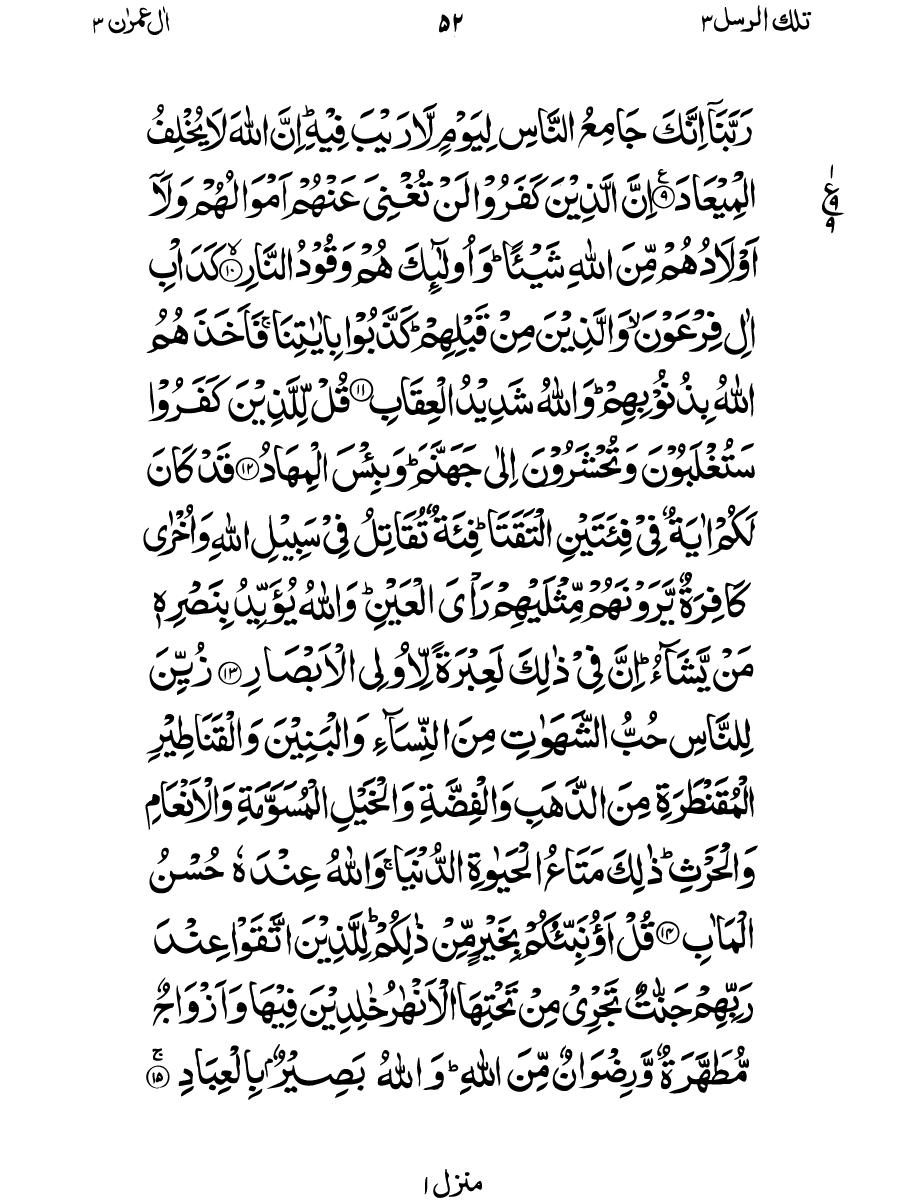 تلك الرسل۳ ۵۲ اٰل عمرٰن ۳
رَبَّنَاۤ اِنَّكَ جَامِعُ النَّاسِ لِيَوْمٍ لَّا رَيْبَ فِيْهِؕ اِنَّ اللّٰهَ لَا يُخْلِفُ
الْمِيْعَادَ۹ۧ اِنَّ الَّذِيْنَ كَفَرُوْا لَنْ تُغْنِيَ عَنْهُمْ اَمْوَالُهُمْ وَلَاۤ
ع ۱ ۹ ۹
اَوْلَادُهُمْ مِّنَ اللّٰهِ شَيْـًٔاؕ وَاُولٰٓئِكَ هُمْ وَقُوْدُ النَّارِ۱۰ۙ كَدَاْبِ
اٰلِ فِرْعَوْنَۙ وَالَّذِيْنَ مِنْ قَبْلِهِمْؕ كَذَّبُوْا بِاٰيٰتِنَاۚ فَاَخَذَهُمُ
اللّٰهُ بِذُنُوْبِهِمْؕ وَاللّٰهُ شَدِيْدُ الْعِقَابِ۱۱ قُلْ لِّلَّذِيْنَ كَفَرُوْا
سَتُغْلَبُوْنَ وَتُحْشَرُوْنَ اِلٰى جَهَنَّمَؕ وَبِئْسَ الْمِهَادُ۱۲ قَدْ كَانَ
لَكُمْ اٰيَةٌ فِيْ فِئَتَيْنِ الْتَقَتَاؕ فِئَةٌ تُقَاتِلُ فِيْ سَبِيْلِ اللّٰهِ وَاُخْرٰى
كَافِرَةٌ يَّرَوْنَهُمْ مِّثْلَيْهِمْ رَاْيَ الْعَيْنِؕ وَاللّٰهُ يُؤَيِّدُ بِنَصْرِهٖ
مَنْ يَّشَآءُؕ اِنَّ فِيْ ذٰلِكَ لَعِبْرَةً لِّاُولِى الْاَبْصَارِ۱۳ زُيِّنَ
لِلنَّاسِ حُبُّ الشَّهَوٰتِ مِنَ النِّسَآءِ وَالْبَنِيْنَ وَالْقَنَاطِيْرِ
الْمُقَنْطَرَةِ مِنَ الذَّهَبِ وَالْفِضَّةِ وَالْخَيْلِ الْمُسَوَّمَةِ وَالْاَنْعَامِ
وَالْحَرْثِؕ ذٰلِكَ مَتَاعُ الْحَيٰوةِ الدُّنْيَاۚ وَاللّٰهُ عِنْدَهٗ حُسْنُ
الْمَاٰبِ۱۴ قُلْ اَؤُنَبِّئُكُمْ بِخَيْرٍ مِّنْ ذٰلِكُمْؕ لِلَّذِيْنَ اتَّقَوْا عِنْدَ
رَبِّهِمْ جَنّٰتٌ تَجْرِيْ مِنْ تَحْتِهَا الْاَنْهٰرُ خٰلِدِيْنَ فِيْهَا وَاَزْوَاجٌ
مُّطَهَّرَةٌ وَّرِضْوَانٌ مِّنَ اللّٰهِؕ وَاللّٰهُ بَصِيْرٌۢ بِالْعِبَادِ۱۵ۚ
منزل ۱